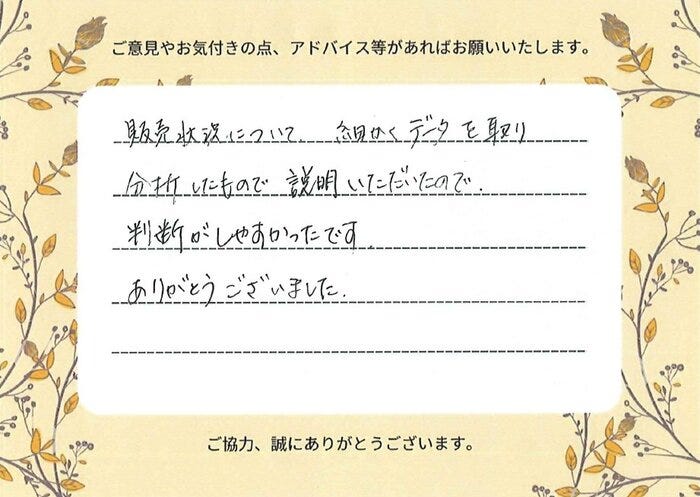 ご意見やお気付きの点、アドバイス等があればお願いいたします。
販売状況について、細かくデータを取り
分析したもので説明いただいたので、
判断がしやすかったです。
ありがとうございました。
ご協力、誠にありがとうございます。